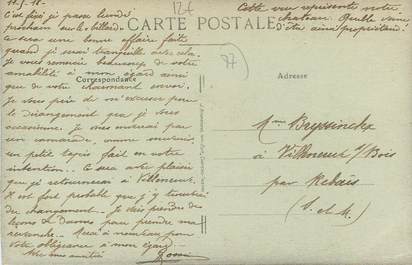 11-5-18-
C'est fixé je passe lundi
prochain sur le billard
ce sera une bonne affaire faite
quand je serai tranquille avec cela.
Je vous remercie beaucoup de votre
amabilité à mon égard ainsi
que de votre charmant envoi.
Je vous prie de m'excuser pour
le dérangement que je vous
occasionne. Je vous enverrai par
un camarade, comme souvenir,
un petit tapis fait en votre
intention. Ce sera avec plaisir
que je retournerai à Villeneuve,
il est fort probable que j'y trouverai
du changement. Je vais prendre des
leçons de dames pour prendre ma
revanche. Merci à nouveau pour
votre obligeance à mon égard.
Mes amitiés
CARTE POSTALE
Correspondance
Adresse
124
77
Cette vue représente votre
château. Quelle veine
d'être ainsi propriétaire!
Mme Bryssinckx
à Villeneuve s/Bois
par Rebais
(S. et M.)